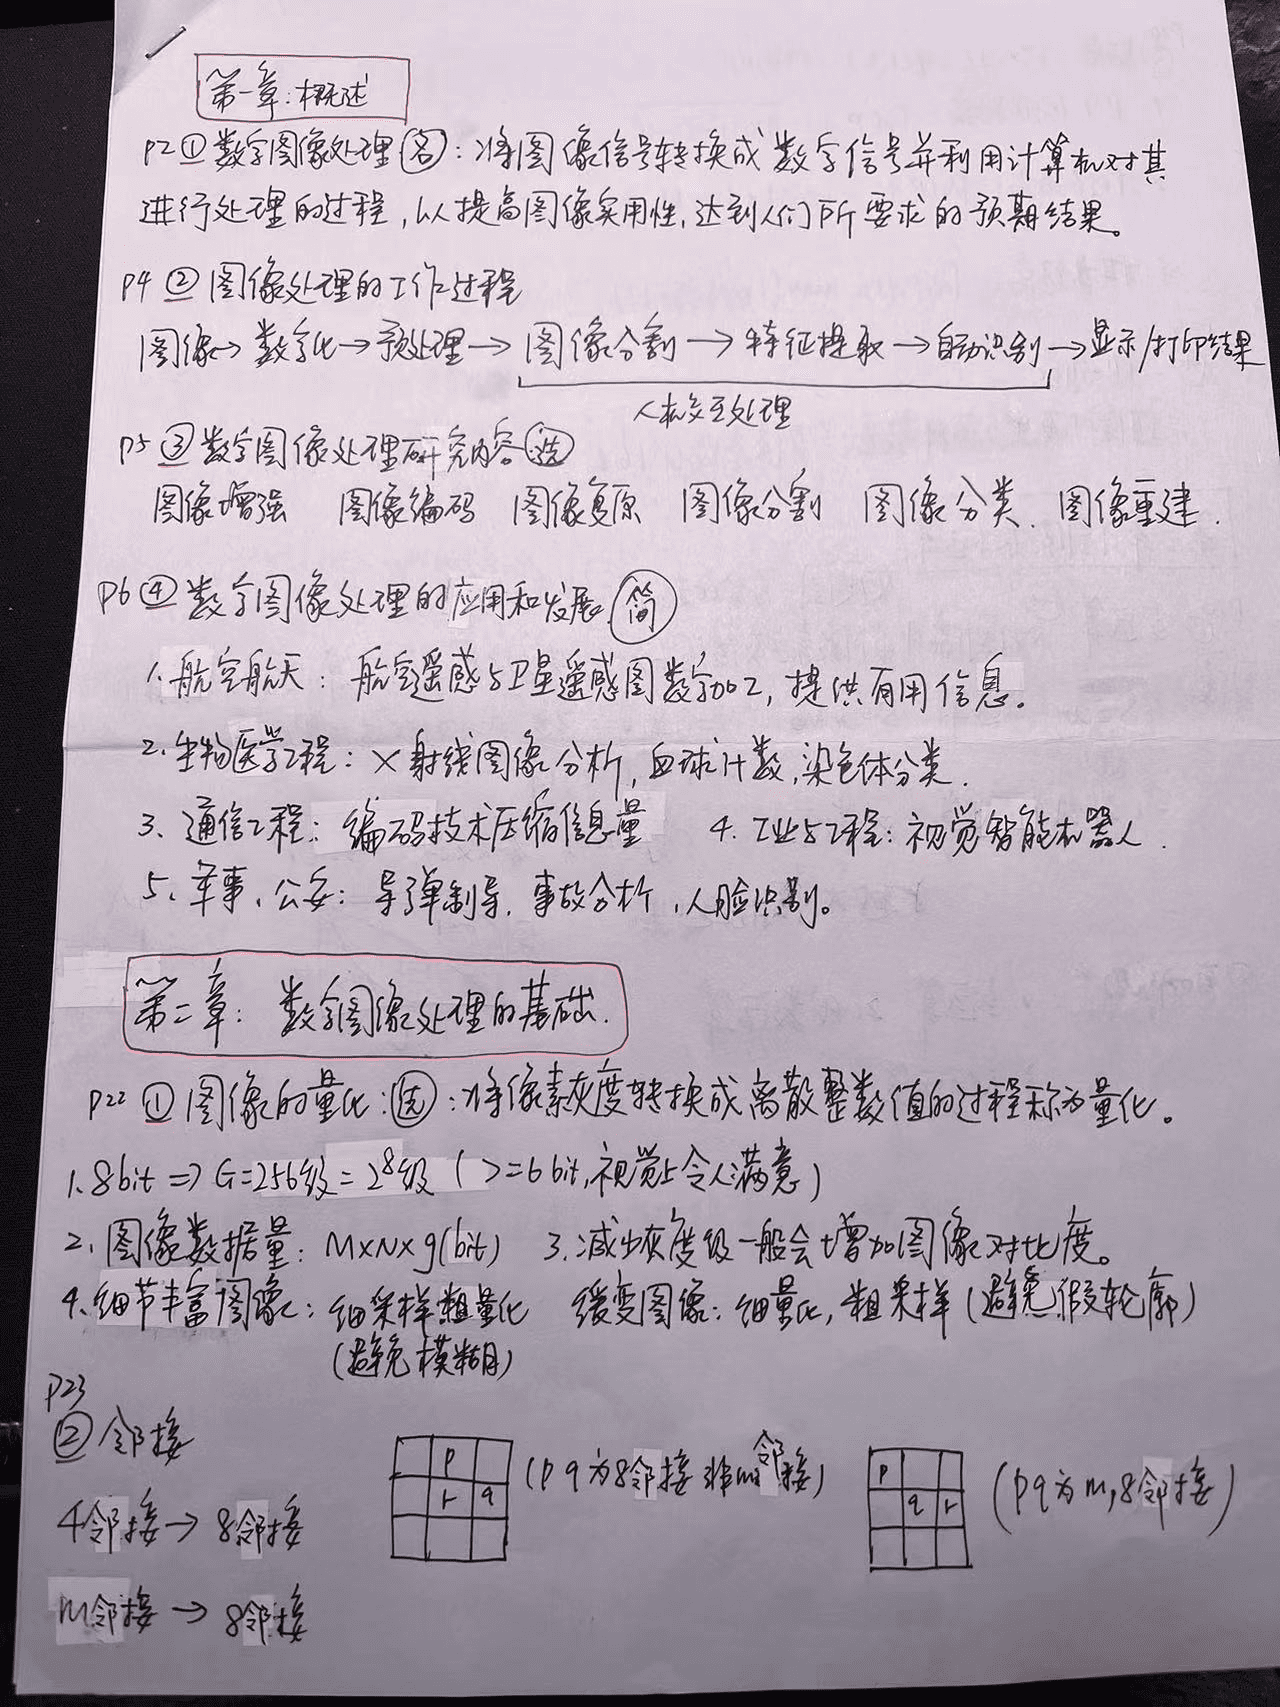 第一章:概述
P2 ① 数字图像处理(名):将图像信号转换成数字信号并利用计算机对其
进行处理的过程,以提高图像实用性,达到人们所要求的预期结果。
P4 ② 图像处理的工作过程
图像→数字化→预处理→图像分割→特征提取→自动识别→显示/打印结果
人机交互处理
P5 ③ 数字图像处理研究内容(选)
图像增强 图像编码 图像复原 图像分割 图像分类. 图像重建.
P6 ④ 数字图像处理的应用和发展(简)
1.航空航天:航空遥感与卫星遥感图数字加工,提供有用信息。
2.生物医学工程:X射线图像分析,血球计数,染色体分类.
3、通信工程:编码技术压缩信息量 4.工业与工程:视觉智能机器人.
5、军事、公安:导弹制导.事故分析、人脸识别。
第二章:数字图像处理的基础.
P22 ① 图像的量化:(选):将像素灰度转换成离散整数值的过程称为量化。
1.8bit=>G=256级=2⁸级(>=6bit,视觉上令人满意)
2.图像数据量:M×N×g(bit) 3.减少灰度级一般会增加图像对比度。
4.细节丰富图像:细采样粗量化 缓变图像:细量化,粗采样(避免假轮廓)
(避免模糊)
P23
② 邻接
p r q (p q为8邻接非m邻接)
p q r (p q为m,8邻接)
4邻接→8邻接
m邻接→8邻接